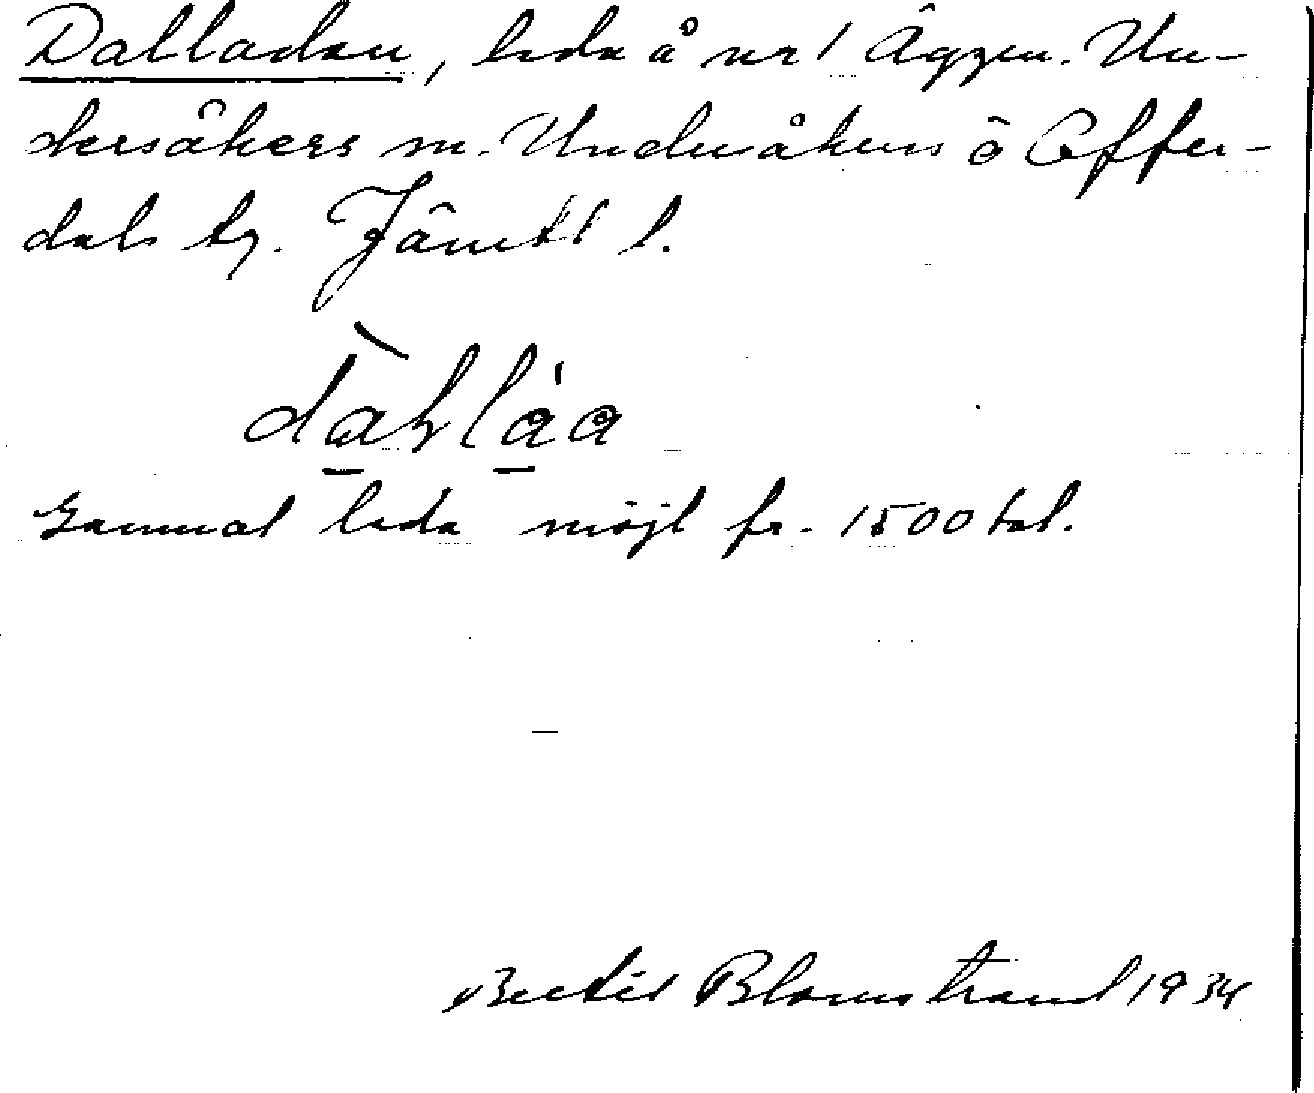 Dalladan, lada å nr 1 Äggen. Un-
dersåkers sn. Undersåkers o Offer-
dals tg. Jämtl l.
dahlåa
Gammal lada möjl fr. 1500 tal.
Bertil Blomstrand 1934